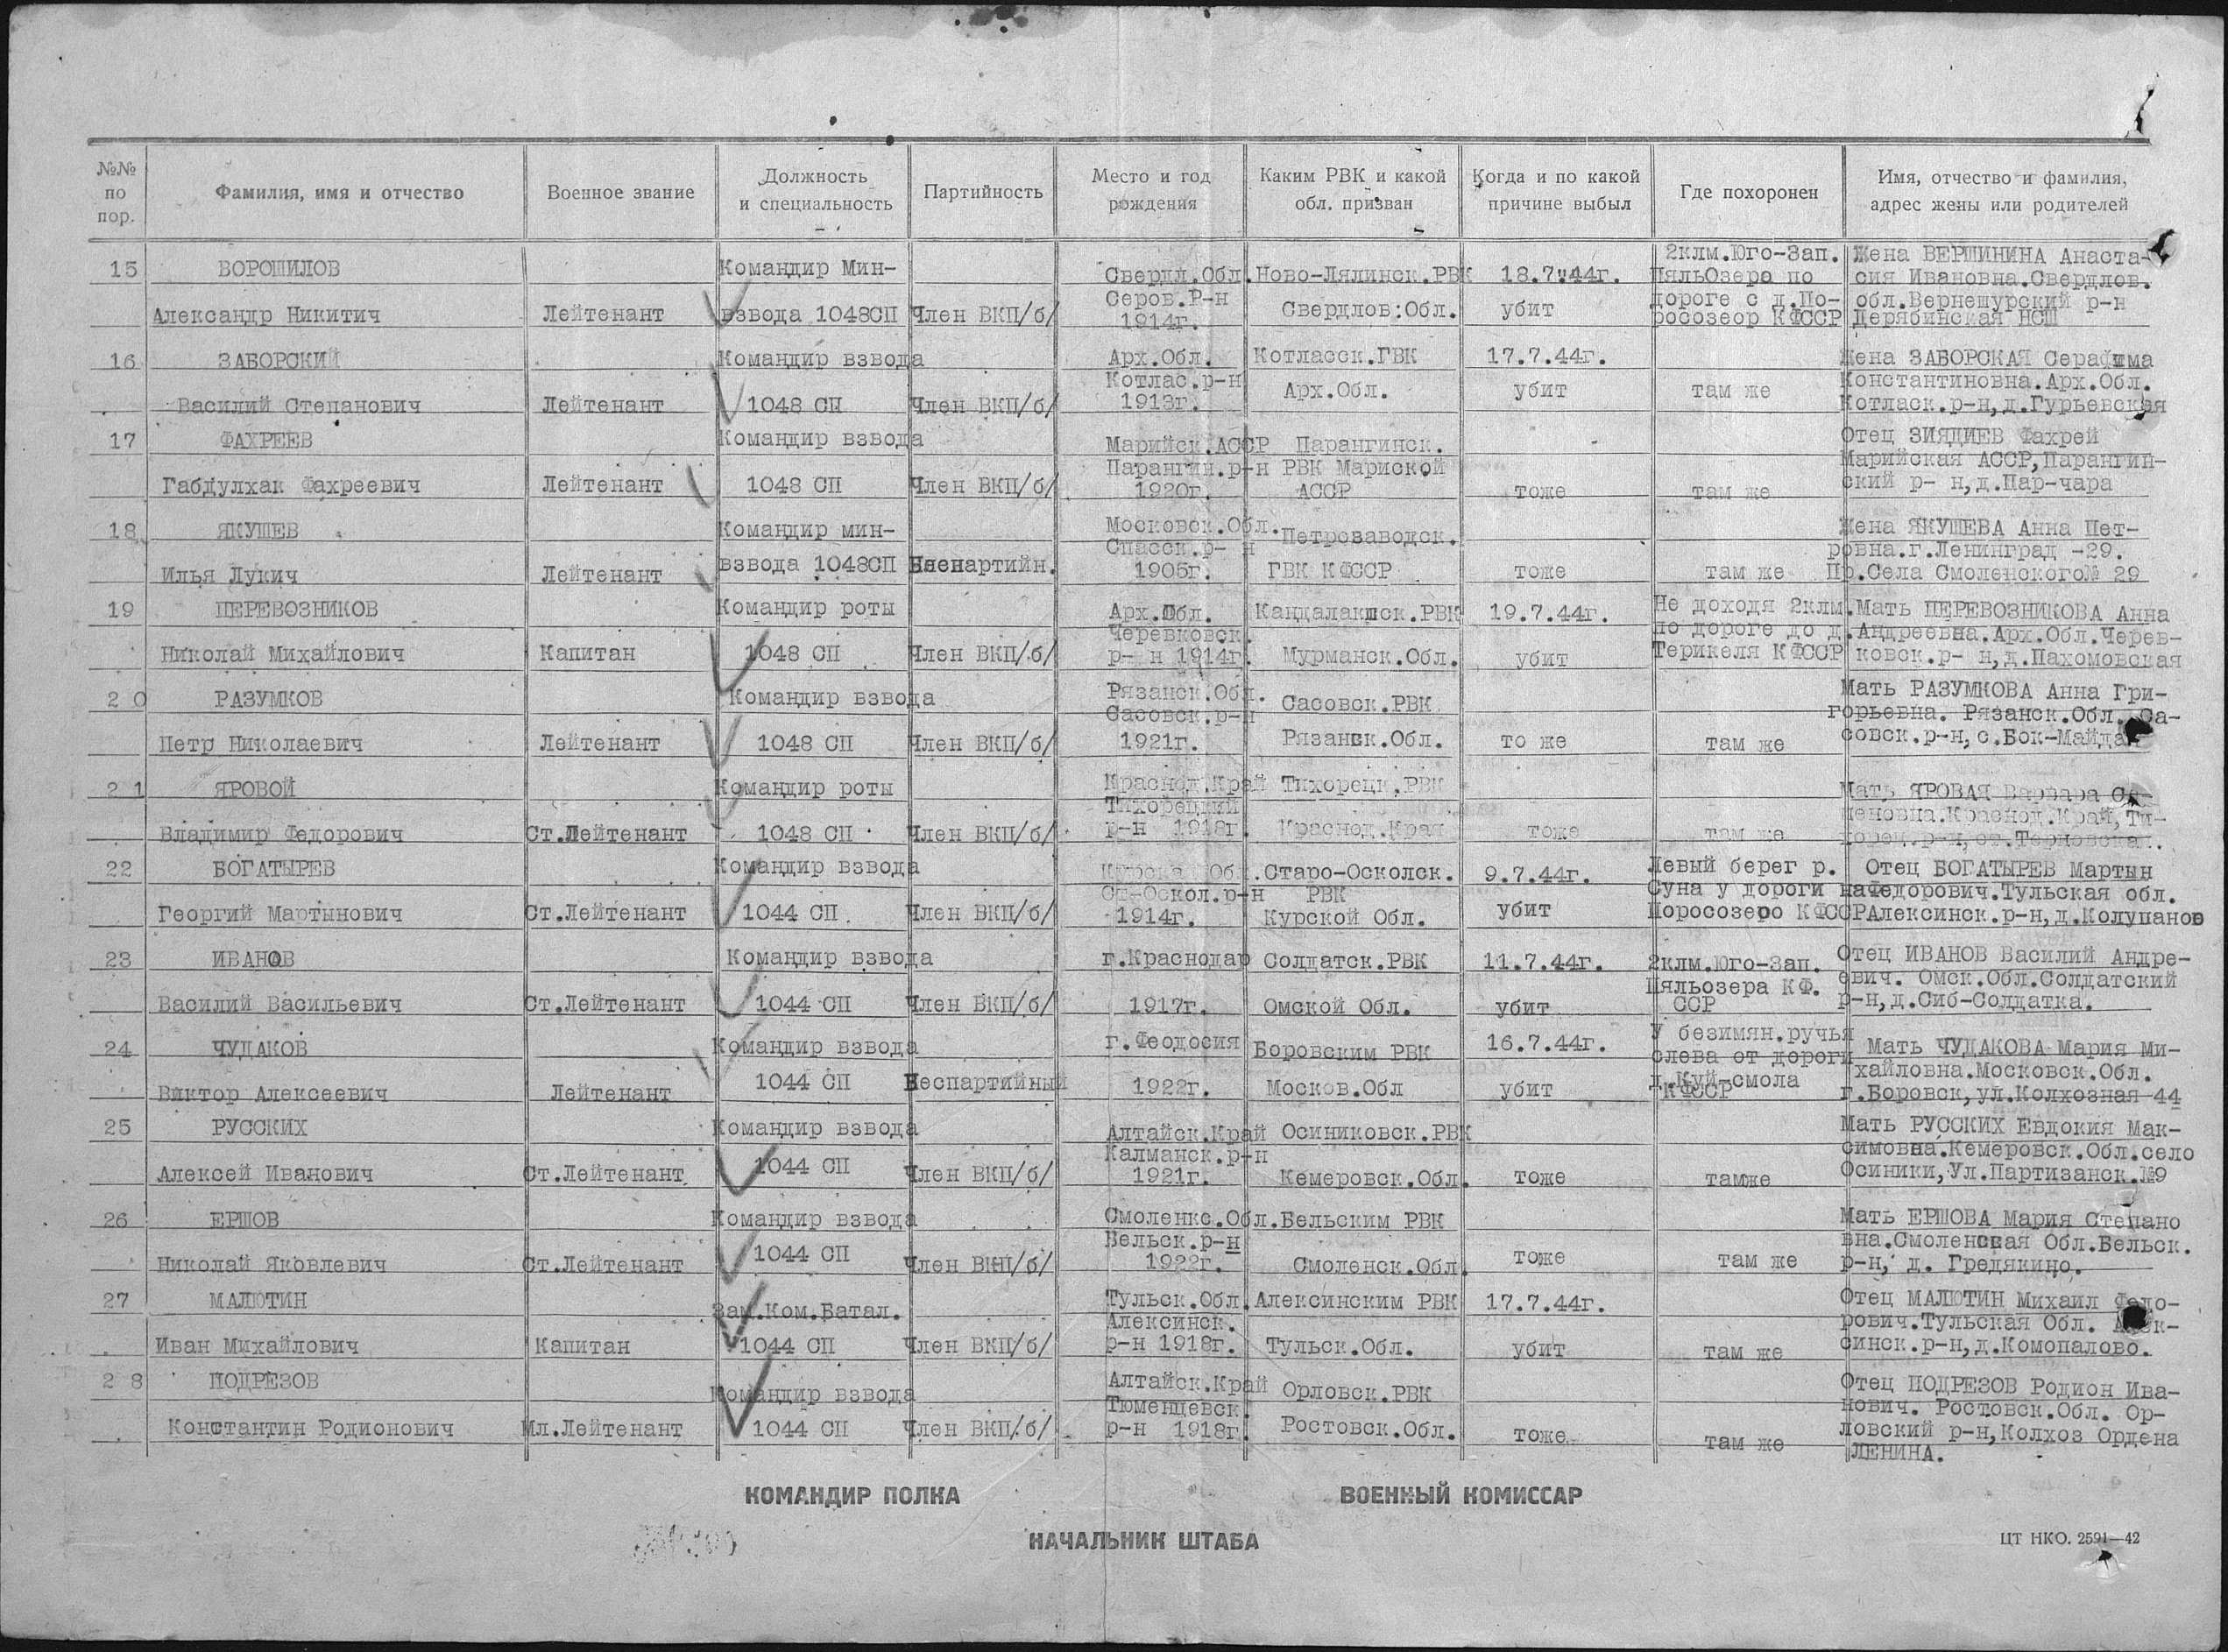 №№ по пор.
Фамилия, имя и отчество
Военное звание
Должность и специальность
Партийность
Место и год рождения
Каким РВК и какой обл. призван
Когда и по какой причине выбыл
Где похоронен
Имя, отчество и фамилия, адрес жены или родителей
15 ВОРОШИЛОВ Александр Никитич
Лейтенант
Командир Мин-взвода 1048СП
Член ВКП/б/
Свердл.Обл. Серов.Р-н 1914г.
Ново-Лялинск.РВК Свердлов:Обл.
18.7.44г. убит
2клм.Юго-Зап. ПяльОзера по дороге с д.По-росозеор КФССР
Жена ВЕРШИНИНА Анаста-сия Ивановна.Свердлов. обл.Вернешурский р-н Дерябинская НСШ
16 ЗАБОРСКИЙ Василий Степанович
Лейтенант
Командир взвода 1048 СП
Член ВКП/б/
Арх.Обл. Котлас.р-н 1913г.
Котласск.ГВК Арх.Обл.
17.7.44г. убит
там же
Жена ЗАБОРСКАЯ Серафима Константиновна.Арх.Обл. Котласк.р-н,д.Гурьевская
17 ФАХРЕЕВ Габдулхак Фахреевич
Лейтенант
Командир взвода 1048 СП
Член ВКП/б/
Марийск.АССР Парангин.р-н 1920г.
Парангинск. РВК Мариской АССР
тоже
там же
Отец ЗИЯДИЕВ Фахрей Марийская АССР,Парангин-ский р- н,д.Пар-чара
18 ЯКУШЕВ Илья Лукич
Лейтенант
Командир мин-взвода 1048СП
Беспартийн.
Московск.Обл. Спасск.р- н 1905г.
Петрозаводск. ГВК КФССР
тоже
там же
Жена ЯКУШЕВА Анна Пет-ровна.г.Ленинград -29. Пр.Села Смоленского№ 29
19 ПЕРЕВОЗНИКОВ Николай Михайлович
Капитан
Командир роты 1048 СП
Член ВКП/б/
Арх.Обл. Черевковск. р- н 1914г.
Кандалакшск.РВК Мурманск.Обл.
19.7.44г. убит
Не доходя 2клм. по дороге до д. Терикеля КФССР
Мать ПЕРЕВОЗНИКОВА Анна Андреевна.Арх.Обл.Черев-ковск.р- н,д.Пахомовская
2 0 РАЗУМКОВ Петр Николаевич
Лейтенант
Командир взвода 1048 СП
Член ВКП/б/
Рязанск.Обл. Сасовск.р-н 1921г.
Сасовск.РВК Рязанск.Обл.
то же
там же
Мать РАЗУМКОВА Анна Гри-горьевна. Рязанск.Обл. Са-совск.р-н,с.Бок-Майдан
2 1 ЯРОВОЙ Владимир Федорович
Ст.Лейтенант
Командир роты 1048 СП
Член ВКП/б/
Краснод.Край Тихорецкий р-н 1918г.
Тихорецк.РВК Краснод.Края
тоже
там же
Мать ЯРОВАЯ Варвара Се-меновна.Краснод.Край,Ти-хорец.р-н,ст.Терновская.
22 БОГАТЫРЕВ Георгий Мартынович
Ст.Лейтенант
Командир взвода 1044 СП
Член ВКП/б/
Курская Обл. Ст-Оскол.р-н 1914г.
Старо-Осколск. РВК Курской Обл.
9.7.44г. убит
Левый берег р. Суна у дороги на Поросозеро КФССР
Отец БОГАТЫРЕВ Мартын Федорович.Тульская обл. Алексинск.р-н,д.Колупанов
23 ИВАНОВ Василий Васильевич
Ст.Лейтенант
Командир взвода 1044 СП
Член ВКП/б/
г.Краснодар 1917г.
Солдатск.РВК Омской Обл.
11.7.44г. убит
2клм.Юго-Зап. Пяльозера КФ. ССР
Отец ИВАНОВ Василий Андре-евич. Омск.Обл.Солдатский р-н,д.Сиб-Солдатка.
24 ЧУДАКОВ Виктор Алексеевич
Лейтенант
Командир взвода 1044 СП
Беспартийный
г.Феодосия 1922г.
Боровским РВК Москов.Обл
16.7.44г. убит
У безимян.ручья слева от дороги д.Куй-смола КФССР
Мать ЧУДАКОВА Мария Ми-хайловна.Московск.Обл. г.Боровск,ул.Колхозная-44
25 РУССКИХ Алексей Иванович
Ст.Лейтенант
Командир взвода 1044 СП
Член ВКП/б/
Алтайск.Край Калманск.р-н 1921г.
Осиниковск.РВК Кемеровск.Обл.
тоже
тамже
Мать РУССКИХ Евдокия Мак-симовна.Кемеровск.Обл.село Осиники,Ул.Партизанск.№9
26 ЕРШОВ Николай Яковлевич
Ст.Лейтенант
Командир взвода 1044 СП
Член ВКП/б/
Смоленкс.Обл. Бельск.р-н 1922г.
Бельским РВК Смоленск.Обл.
тоже
там же
Мать ЕРШОВА Мария Степано вна.Смоленская Обл.Бельск. р-н, д. Гредякино.
27 МАЛЮТИН Иван Михайлович
Капитан
Зам.Ком.Батал. 1044 СП
Член ВКП/б/
Тульск.Обл. Алексинск. р-н 1918г.
Алексинским РВК Тульск.Обл.
17.7.44г. убит
там же
Отец МАЛЮТИН Михаил Федо-рович.Тульская Обл. Алек-синск.р-н,д.Комопалово.
2 8 ПОДРЕЗОВ Константин Родионович
Мл.Лейтенант
Командир взвода 1044 СП
Член ВКП/б/
Алтайск.Край Тюменцевск. р-н 1918г.
Орловск.РВК Ростовск.Обл.
тоже
там же
Отец ПОДРЕЗОВ Родион Ива-нович. Ростовск.Обл. Ор-ловский р-н,Колхоз Ордена ЛЕНИНА.
КОМАНДИР ПОЛКА
ВОЕННЫЙ КОМИССАР
НАЧАЛЬНИК ШТАБА
ЦТ НКО. 2591—42